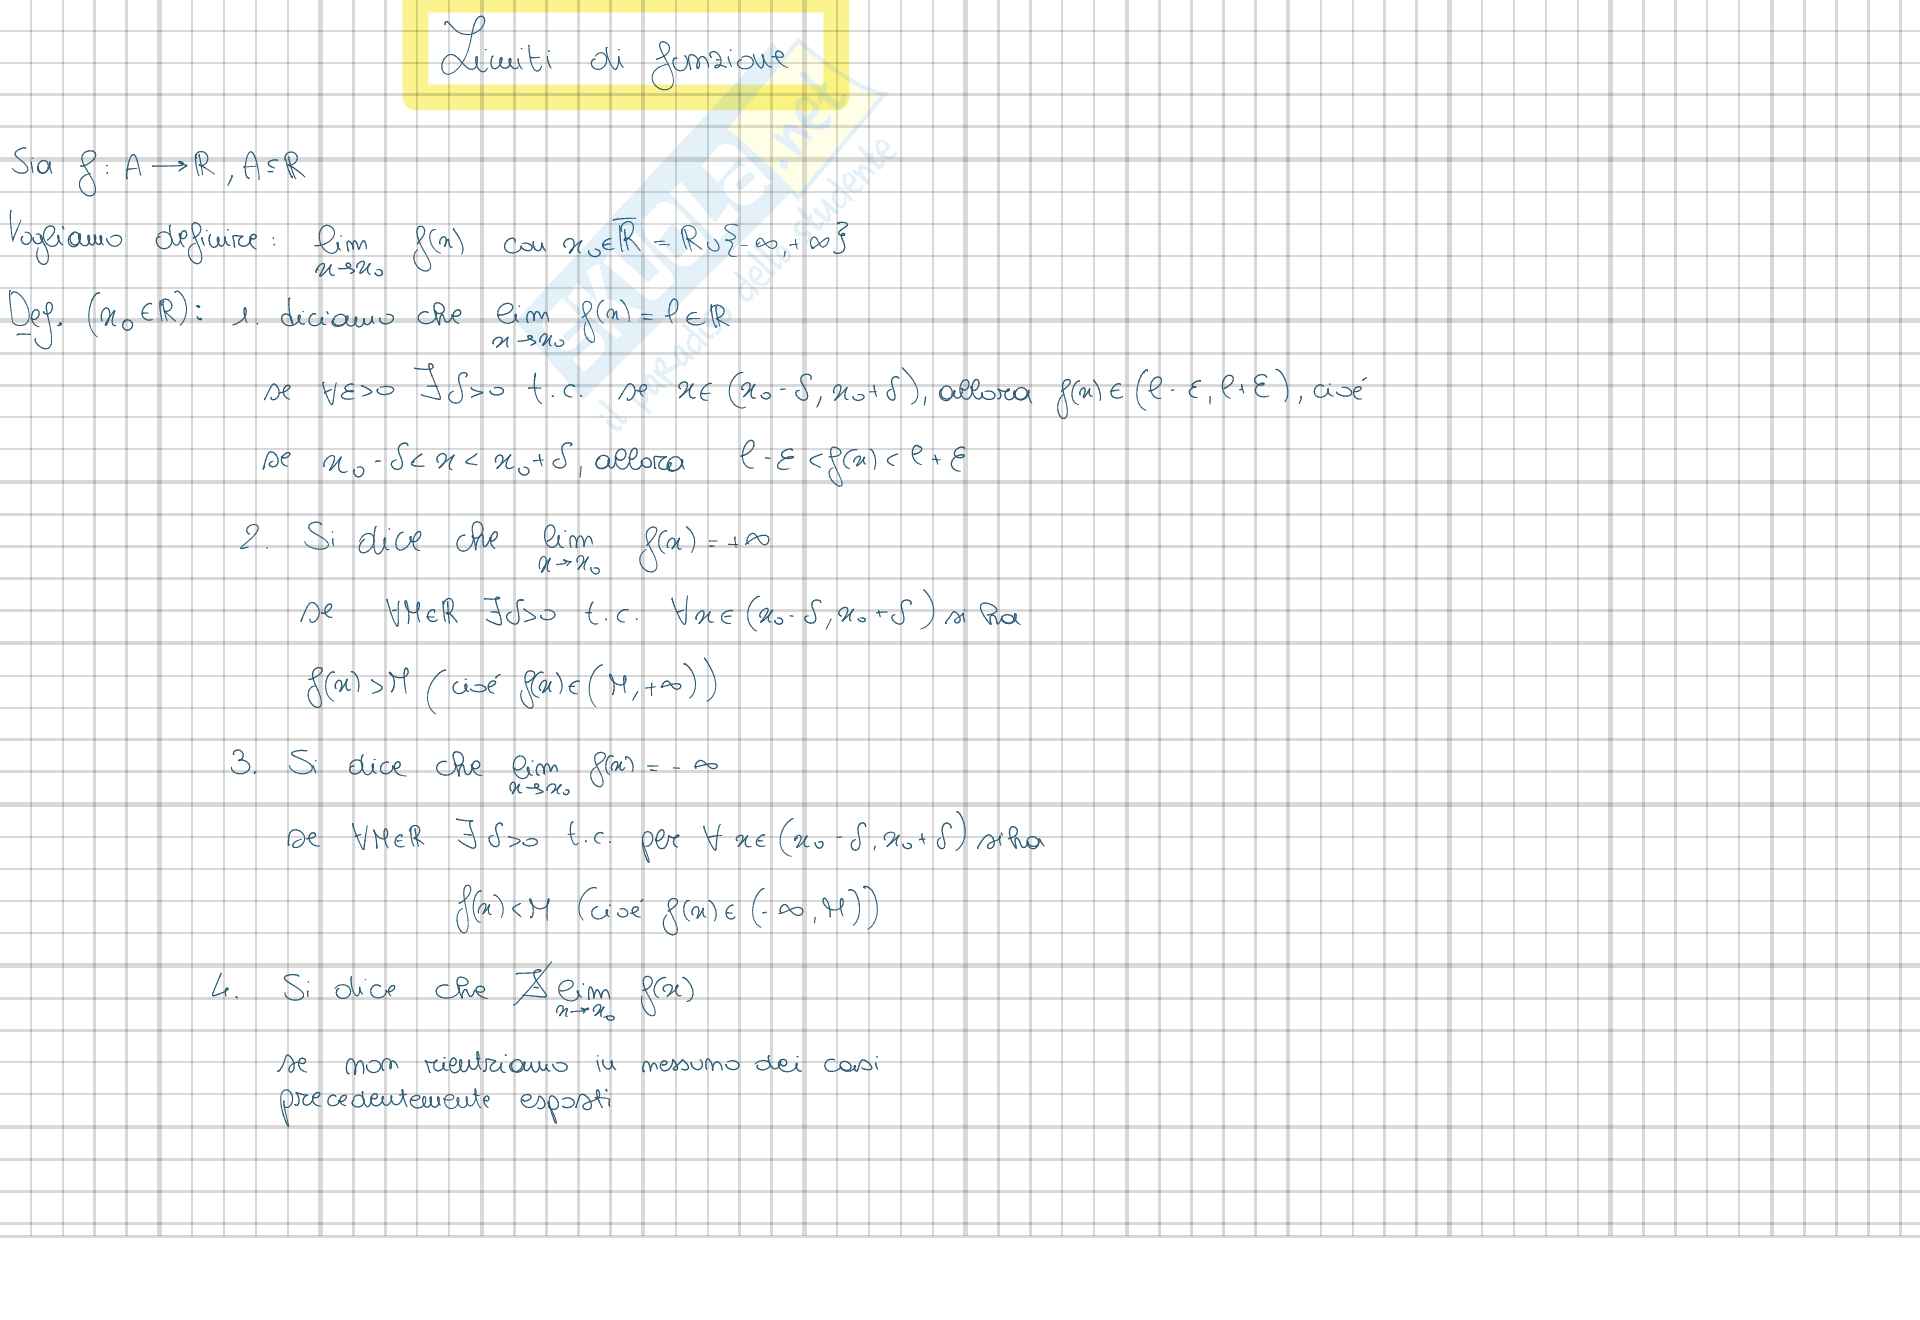 Limiti di funzione
Sia f: A → ℝ, A ⊆ ℝ
Vogliamo definire: lim f(x) con x₀ ∈ ℝ̅ = ℝ ∪ {-∞, +∞}
x→x₀
Def. (x₀ ∈ ℝ): 1. diciamo che lim f(x) = l ∈ ℝ
x→x₀
se ∀ε>0 ∃δ>0 t.c. se x ∈ (x₀-δ, x₀+δ), allora f(x) ∈ (l-ε, l+ε), cioé
se x₀-δ < x < x₀+δ, allora l-ε < f(x) < l+ε
2. Si dice che lim f(x) = +∞
x→x₀
se ∀M∈ℝ ∃δ>0 t.c. ∀x ∈ (x₀-δ, x₀+δ) si ha
f(x) > M (cioé f(x) ∈ (M, +∞))
3. Si dice che lim f(x) = -∞
x→x₀
se ∀M∈ℝ ∃δ>0 t.c. per ∀x ∈ (x₀-δ, x₀+δ) si ha
f(x) < M (cioé f(x) ∈ (-∞, M))
4. Si dice che ∄ lim f(x)
x→x₀
se non rientriamo in nessuno dei casi
precedentemente esposti
SKUOLA.net
il paradiso dello studente